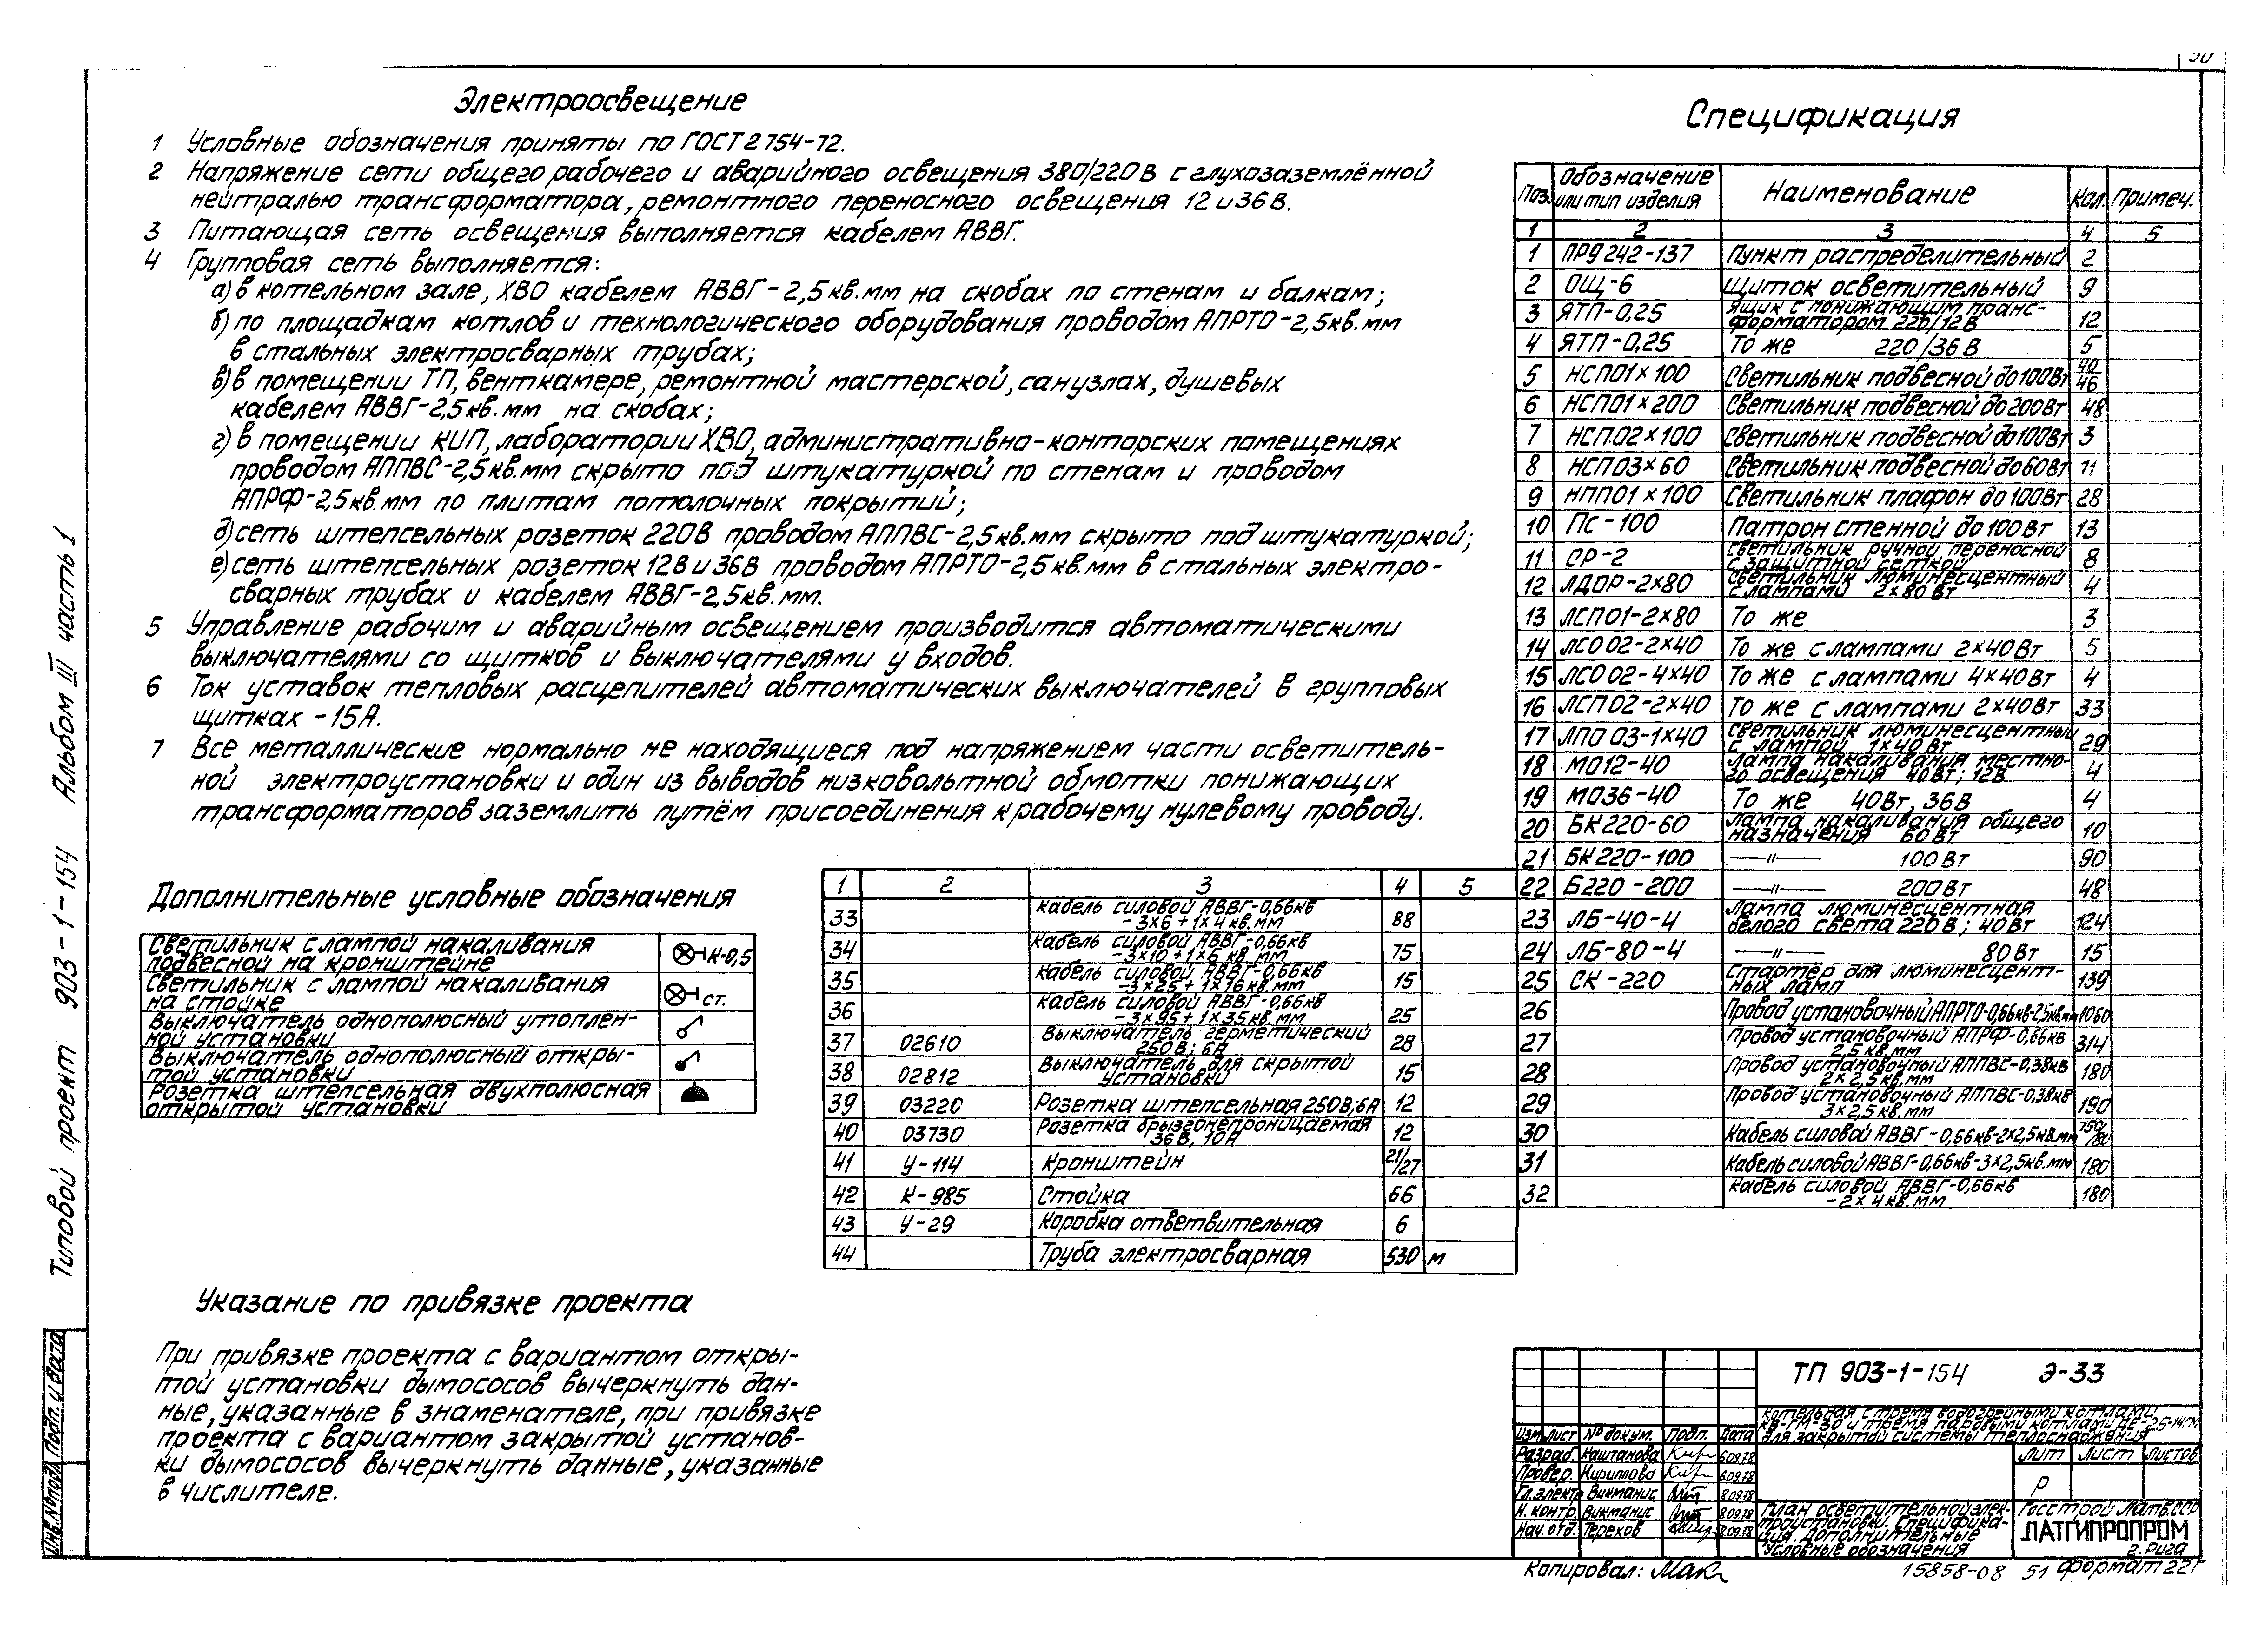 Электроосвещение
1 Условные обозначения приняты по ГОСТ 2754-72.
2 Напряжение сети общего рабочего и аварийного освещения 380/220В с глухозаземлённой
нейтралью трансформатора, ремонтного переносного освещения 12 и 36 В.
3 Питающая сеть освещения выполняется кабелем АВВГ.
4 Групповая сеть выполняется:
а) в котельном зале, ХВО кабелем АВВГ-2,5кв.мм на скобах по стенам и балкам;
б) по площадкам котлов и технологического оборудования проводом АПРТО-2,5кв.мм
в стальных электросварных трубах;
в) в помещении ТП, венткамере, ремонтной мастерской, санузлах, душевых
кабелем АВВГ-2,5кв.мм на скобах;
г) в помещении КИП, лаборатории ХВО, административно-конторских помещениях
проводом АППВС-2,5кв.мм скрыто под штукатуркой по стенам и проводом
АПРФ-2,5кв.мм по плитам потолочных покрытий;
д) сеть штепсельных розеток 220В проводом АППВС-2,5кв.мм скрыто под штукатуркой;
е) сеть штепсельных розеток 12В и 36В проводом АПРТО-2,5кв.мм в стальных электро-
сварных трубах и кабелем АВВГ-2,5кв.мм.
5 Управление рабочим и аварийным освещением производится автоматическими
выключателями со щитков и выключателями у входов.
6 Ток уставок тепловых расцепителей автоматических выключателей в групповых
щитках -15А.
7 Все металлические нормально не находящиеся под напряжением части осветитель-
ной электроустановки и один из выводов низковольтной обмотки понижающих
трансформаторов заземлить путём присоединения к рабочему нулевому проводу.
Дополнительные условные обозначения
Светильник с лампой накаливания
подвесной на кронштейне К-0,5
Светильник с лампой накаливания
на стойке ст.
Выключатель однополюсный утоплен-
ной установки
Выключатель однополюсный откры-
той установки
Розетка штепсельная двухполюсная
открытой установки
Указание по привязке проекта
При привязке проекта с вариантом откры-
той установки дымососов вычеркнуть дан-
ные, указанные в знаменателе, при привязке
проекта с вариантом закрытой установ-
ки дымососов вычеркнуть данные, указанные
в числителе.
Спецификация
Поз. Обозначение или тип изделия Наименование Кол. Примеч.
1 2 3 4 5
1 ПР9242-137 Пункт распределительный 2
2 ОЩ-6 Щиток осветительный 9
3 ЯТП-0,25 Ящик с понижающим транс-
форматором 220/12В 12
4 ЯТП-0,25 То же 220/36В 5
5 НСП01×100 Светильник подвесной до 100Вт 40/46
6 НСП01×200 Светильник подвесной до 200Вт 48
7 НСП02×100 Светильник подвесной до 100Вт 3
8 НСП03×60 Светильник подвесной до 60Вт 11
9 НПП01×100 Светильник плафон до 100Вт 28
10 Пс-100 Патрон стенной до 100Вт 13
11 СР-2 Светильник ручной переносной
с защитной сеткой 8
12 ЛДОР-2×80 Светильник люминесцентный
с лампами 2×80Вт 4
13 ЛСП01-2×80 То же 3
14 ЛСО02-2×40 То же с лампами 2×40Вт 5
15 ЛСО02-4×40 То же с лампами 4×40Вт 4
16 ЛСП02-2×40 То же с лампами 2×40Вт 33
17 ЛПО03-1×40 Светильник люминесцентный
с лампой 1×40Вт 29
18 МО12-40 Лампа накаливания местно-
го освещения 40Вт; 12В 4
19 МО36-40 То же 40Вт, 36В 4
20 БК220-60 Лампа накаливания общего
назначения 60Вт 10
21 БК220-100 —"— 100Вт 90
22 Б220-200 —"— 200Вт 48
23 ЛБ-40-4 Лампа люминесцентная
белого света 220В; 40Вт 124
24 ЛБ-80-4 —"— 80Вт 15
25 СК-220 Стартёр для люминесцент-
ных ламп 139
26 Провод установочный АПРТО-0,66кв-2,5кв.мм 1060
27 Провод установочный АПРФ-0,66кв
2,5кв.мм 314
28 Провод установочный АППВС-0,38кв
2×2,5кв.мм 180
29 Провод установочный АППВС-0,38кв
3×2,5кв.мм 190
30 Кабель силовой АВВГ-0,66кв-2×2,5кв.мм
31 Кабель силовой АВВГ-0,66кв-3×2,5кв.мм 180
32 Кабель силовой АВВГ-0,66кв
-2×4кв.мм 180
1 2 3 4 5
33 Кабель силовой АВВГ-0,66кв
-3×6+1×4кв.мм 88
34 Кабель силовой АВВГ-0,66кв
-3×10+1×6кв.мм 75
35 Кабель силовой АВВГ-0,66кв
-3×25+1×16кв.мм 15
36 Кабель силовой АВВГ-0,66кв
-3×95+1×35кв.мм 25
37 02610 Выключатель герметический
250В; 6А 28
38 02812 Выключатель для скрытой
установки 15
39 03220 Розетка штепсельная 250В; 6А 12
40 03730 Розетка брызгонепроницаемая
36В, 10А 12
41 У-114 Кронштейн 21/27
42 К-985 Стойка 66
43 У-29 Коробка ответвительная 6
44 Труба электросварная 530 м
ТП 903-1-154 Э-33
Котельная с тремя водогрейными котлами
КВ-ГМ-30 и тремя паровыми котлами ДЕ-25-14ГМ
для закрытой системы теплоснабжения
Изм Лист № докум. Подп. Дата
Разраб. Каштанова 6.09.78
Провер. Кириллова 6.09.78
Гл.электр Викманис 8.09.78
Н.контр. Викманис 8.09.78
Нач.отд. Терехов 8.09.78
Лит Лист Листов
Р
План осветительной элек-
троустановки. Специфика-
ция. Дополнительные
условные обозначения
Госстрой Латв.ССР
ЛАТГИПРОПРОМ
г.Рига
Копировал: Мак
15858-08 51 Формат 22Г
Типовой проект 903-1-154 Альбом III часть 1
Инв.№подл. Подп. и дата